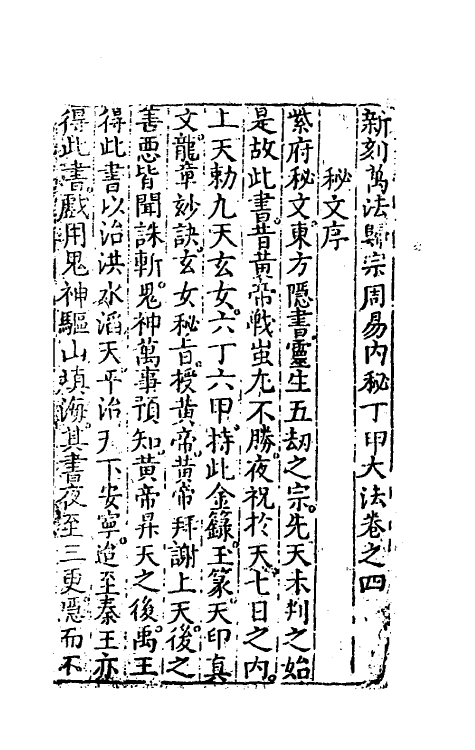 新刻萬法歸宗周易內秘丁甲大法卷之四
秘文序
紫府秘文東方隱書靈生五劫之宗先天未判之始
是故此書昔黃帝戰蚩尤不勝夜祝於天七日之內
上天勅九天玄女六丁六甲持此金籙玉篆天印真
文龍章妙訣玄女秘旨授黃帝黃帝拜謝上天後之
善惡皆聞誅斬鬼神萬事預知黃帝昇天之後禹王
得此書以治洪水滔天平治天下安寧迨至秦王亦
得此書戲用鬼神驅山填海其書夜至三更隱而不